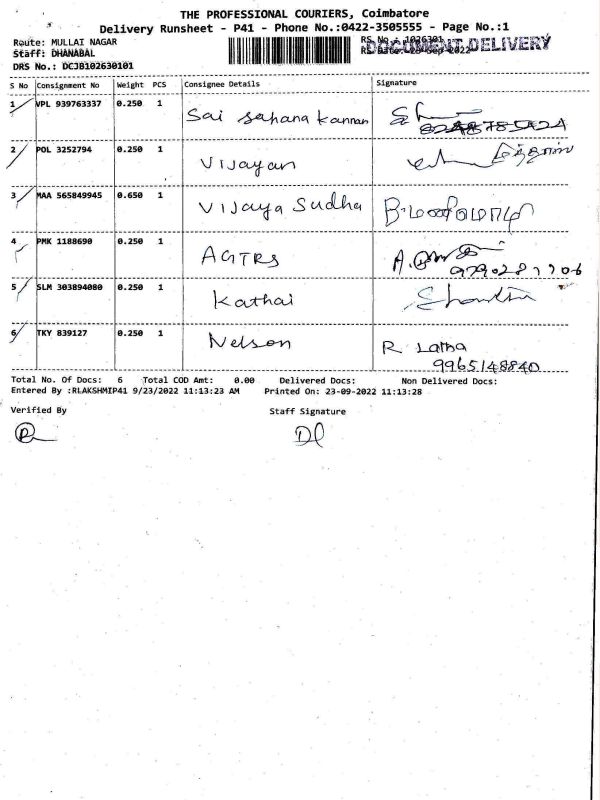 THE PROFESSIONAL COURIERS, Coimbatore
Delivery Runsheet - P41 - Phone No.:0422-3505555 - Page No.:1
Route: MULLAI NAGAR
Staff: DHANABAL
DRS No.: DCJB102630101
RS No.: 1026301
RS Date: 23-Sep-2022
DOCUMENT DELIVERY
S No Consignment No Weight PCS Consignee Details Signature
1 VPL 939763337 0.250 1 Sai sahana kannan
2 POL 3252794 0.250 1 Vijayan
3 MAA 565849945 0.650 1 Vijaya Sudha
4 PMK 1188690 0.250 1
5 SLM 303894080 0.250 1 Kathai
6 TKY 839127 0.250 1 Nelson R Latha
9965148840
Total No. Of Docs: 6 Total COD Amt: 0.00 Delivered Docs: Non Delivered Docs:
Entered By :RLAKSHMIP41 9/23/2022 11:13:23 AM Printed On: 23-09-2022 11:13:28
Verified By Staff Signature